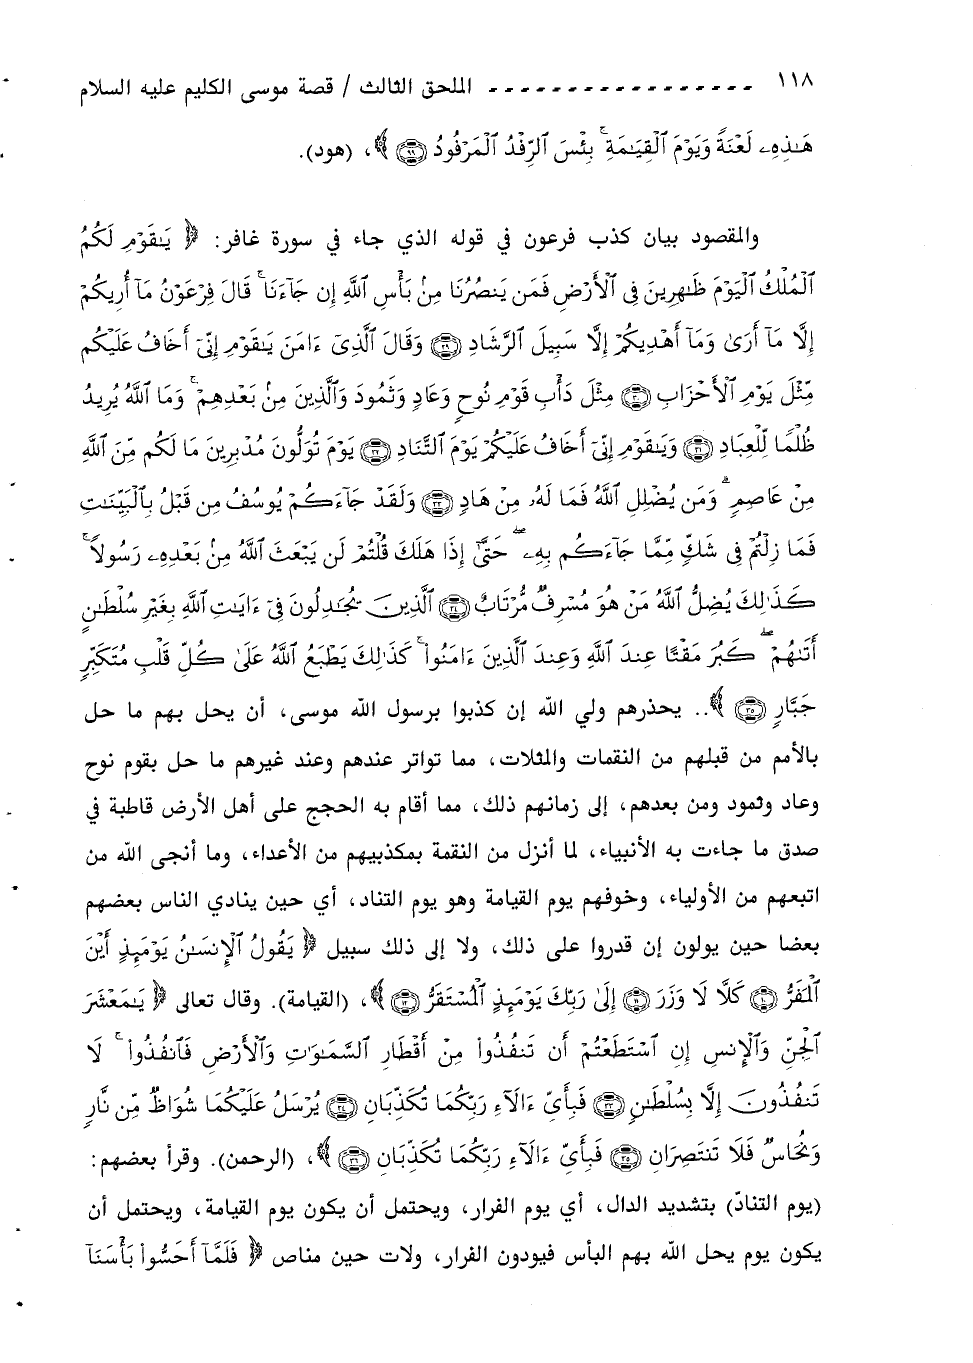 ١١٨ ----------------- الملحق الثالث / قصة موسى الكليم عليه السلام
هَـٰذِهِۦ لَعْنَةً وَيَوْمَ ٱلْقِيَـٰمَةِ ۚ بِئْسَ ٱلرِّفْدُ ٱلْمَرْفُودُ ﴿٩٩﴾ ﴾، (هود).
والمقصود بيان كذب فرعون في قوله الذي جاء في سورة غافر: ﴿ يَـٰقَوْمِ لَكُمُ
ٱلْمُلْكُ ٱلْيَوْمَ ظَـٰهِرِينَ فِى ٱلْأَرْضِ فَمَن يَنصُرُنَا مِنۢ بَأْسِ ٱللَّهِ إِن جَآءَنَا ۚ قَالَ فِرْعَوْنُ مَآ أُرِيكُمْ
إِلَّا مَآ أَرَىٰ وَمَآ أَهْدِيكُمْ إِلَّا سَبِيلَ ٱلرَّشَادِ ﴿٢٩﴾ وَقَالَ ٱلَّذِىٓ ءَامَنَ يَـٰقَوْمِ إِنِّىٓ أَخَافُ عَلَيْكُم
مِّثْلَ يَوْمِ ٱلْأَحْزَابِ ﴿٣٠﴾ مِثْلَ دَأْبِ قَوْمِ نُوحٍ وَعَادٍ وَثَمُودَ وَٱلَّذِينَ مِنۢ بَعْدِهِمْ ۚ وَمَا ٱللَّهُ يُرِيدُ
ظُلْمًا لِّلْعِبَادِ ﴿٣١﴾ وَيَـٰقَوْمِ إِنِّىٓ أَخَافُ عَلَيْكُمْ يَوْمَ ٱلتَّنَادِ ﴿٣٢﴾ يَوْمَ تُوَلُّونَ مُدْبِرِينَ مَا لَكُم مِّنَ ٱللَّهِ
مِنْ عَاصِمٍ ۗ وَمَن يُضْلِلِ ٱللَّهُ فَمَا لَهُۥ مِنْ هَادٍ ﴿٣٣﴾ وَلَقَدْ جَآءَكُمْ يُوسُفُ مِن قَبْلُ بِٱلْبَيِّنَـٰتِ
فَمَا زِلْتُمْ فِى شَكٍّ مِّمَّا جَآءَكُم بِهِۦ ۖ حَتَّىٰٓ إِذَا هَلَكَ قُلْتُمْ لَن يَبْعَثَ ٱللَّهُ مِنۢ بَعْدِهِۦ رَسُولًا ۚ
كَذَٰلِكَ يُضِلُّ ٱللَّهُ مَنْ هُوَ مُسْرِفٌ مُّرْتَابٌ ﴿٣٤﴾ ٱلَّذِينَ يُجَـٰدِلُونَ فِىٓ ءَايَـٰتِ ٱللَّهِ بِغَيْرِ سُلْطَـٰنٍ
أَتَىٰهُمْ ۖ كَبُرَ مَقْتًا عِندَ ٱللَّهِ وَعِندَ ٱلَّذِينَ ءَامَنُوا۟ ۚ كَذَٰلِكَ يَطْبَعُ ٱللَّهُ عَلَىٰ كُلِّ قَلْبِ مُتَكَبِّرٍ
جَبَّارٍ ﴿٣٥﴾ ﴾.. يحذرهم ولي الله إن كذبوا برسول الله موسى، أن يحل بهم ما حل
بالأمم من قبلهم من النقمات والمثلات، مما تواتر عندهم وعند غيرهم ما حل بقوم نوح
وعاد وثمود ومن بعدهم، إلى زمانهم ذلك، مما أقام به الحجج على أهل الأرض قاطبة في
صدق ما جاءت به الأنبياء، لما أنزل من النقمة بمكذبيهم من الأعداء، وما أنجى الله من
اتبعهم من الأولياء، وخوفهم يوم القيامة وهو يوم التناد، أي حين ينادي الناس بعضهم
بعضا حين يولون إن قدروا على ذلك، ولا إلى ذلك سبيل ﴿ يَقُولُ ٱلْإِنسَـٰنُ يَوْمَئِذٍ أَيْنَ
ٱلْمَفَرُّ ﴿١٠﴾ كَلَّا لَا وَزَرَ ﴿١١﴾ إِلَىٰ رَبِّكَ يَوْمَئِذٍ ٱلْمُسْتَقَرُّ ﴿١٢﴾ ﴾، (القيامة). وقال تعالى ﴿ يَـٰمَعْشَرَ
ٱلْجِنِّ وَٱلْإِنسِ إِنِ ٱسْتَطَعْتُمْ أَن تَنفُذُوا۟ مِنْ أَقْطَارِ ٱلسَّمَـٰوَٰتِ وَٱلْأَرْضِ فَٱنفُذُوا۟ ۚ لَا
تَنفُذُونَ إِلَّا بِسُلْطَـٰنٍ ﴿٣٣﴾ فَبِأَىِّ ءَالَآءِ رَبِّكُمَا تُكَذِّبَانِ ﴿٣٤﴾ يُرْسَلُ عَلَيْكُمَا شُوَاظٌ مِّن نَّارٍ
وَنُحَاسٌ فَلَا تَنتَصِرَانِ ﴿٣٥﴾ فَبِأَىِّ ءَالَآءِ رَبِّكُمَا تُكَذِّبَانِ ﴿٣٦﴾ ﴾، (الرحمن). وقرأ بعضهم:
(يوم التنادّ) بتشديد الدال، أي يوم الفرار، ويحتمل أن يكون يوم القيامة، ويحتمل أن
يكون يوم يحل الله بهم البأس فيودون الفرار، ولات حين مناص ﴿ فَلَمَّآ أَحَسُّوا۟ بَأْسَنَآ